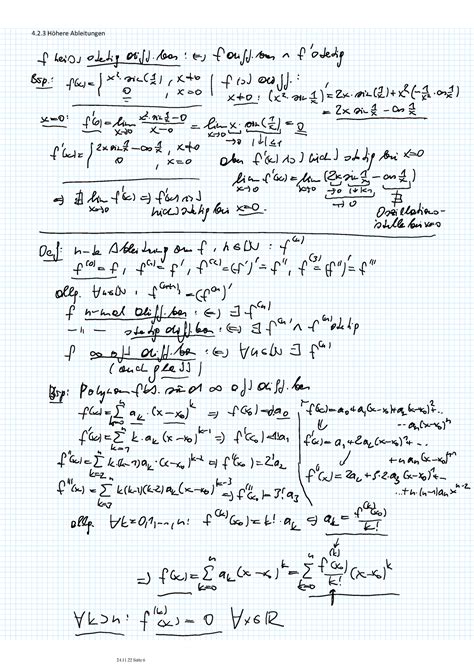 4.2.3 Höhere Ableitungen
f heißt stetig diff.bar :⇔ f diff.bar ∧ f' stetig
Bsp.: f(x) = { x²·sin(1/x), x≠0
0, x=0
f ist diff.:
x≠0: (x² sin(1/x))' = 2x·sin(1/x) + x²(-1/x²·cos(1/x))
= 2x sin 1/x - cos 1/x
x=0: f'(0) = lim x→0 (x² sin 1/x - 0)/(x-0) = lim x→0 x·sin(1/x) = 0
f'(x) = { 2x sin 1/x - cos 1/x, x≠0
0, x=0
aber f'(x) ist nicht stetig bei x=0
lim x→0 f'(x) = lim x→0 (2x sin 1/x - cos 1/x)
⇒ ∄ lim x→0 f'(x) ⇒ f'(x) ist
nicht stetig bei x=0.
Oszillations-
stelle bei x=0
Def: n-te Ableitung von f, n∈ℕ: f^(n)
f^(0) = f, f^(1) = f', f^(2) = (f')' = f'', f^(3) = (f'')' = f'''
allg. ∀n∈ℕ: f^(n+1) = (f^(n))'
f n-mal diff.bar :⇔ ∃ f^(n)
-"- stetig diff.bar :⇔ ∃ f^(n) ∧ f^(n) stetig
f ∞ oft diff.bar :⇔ ∀n∈ℕ ∃ f^(n)
(auch glatt)
Bsp: Polynomfkt. sind ∞ oft diff.bar
f(x) = Σ k=0 n a_k·(x-x₀)^k ⇒ f(x₀) = a₀
f'(x) = Σ k=1 n k·a_k(x-x₀)^k-1 ⇒ f'(x₀) = a₁
f''(x) = Σ k=2 n k(k-1)a_k·(x-x₀)^k-2 ⇒ f''(x₀) = 2!a₂
f'''(x) = Σ k=3 n k(k-1)(k-2)a_k(x-x₀)^k-3 ⇒ f'''(x₀) = 3!a₃
f(x) = a₀+a₁(x-x₀)+a₂(x-x₀)²+...
...a_n(x-x₀)^n
f'(x) = a₁+2a₂(x-x₀)+...
+n a_n(x-x₀)^n-1
f''(x) = 2a₂+3·2a₃(x-x₀)+...
...+n·(n-1)a_n x^n-2
allg. ∀k=0,1,...,n: f^(k)(x₀) = k!·a_k ⇒ a_k = f^(k)(x₀)/k!
⇒ f(x) = Σ k=0 n a_k(x-x₀)^k = Σ k=0 n f^(k)(x₀)/k! (x-x₀)^k
∀k>n: f^(k)(x) = 0 ∀x∈ℝ
24.11.22 Seite 6